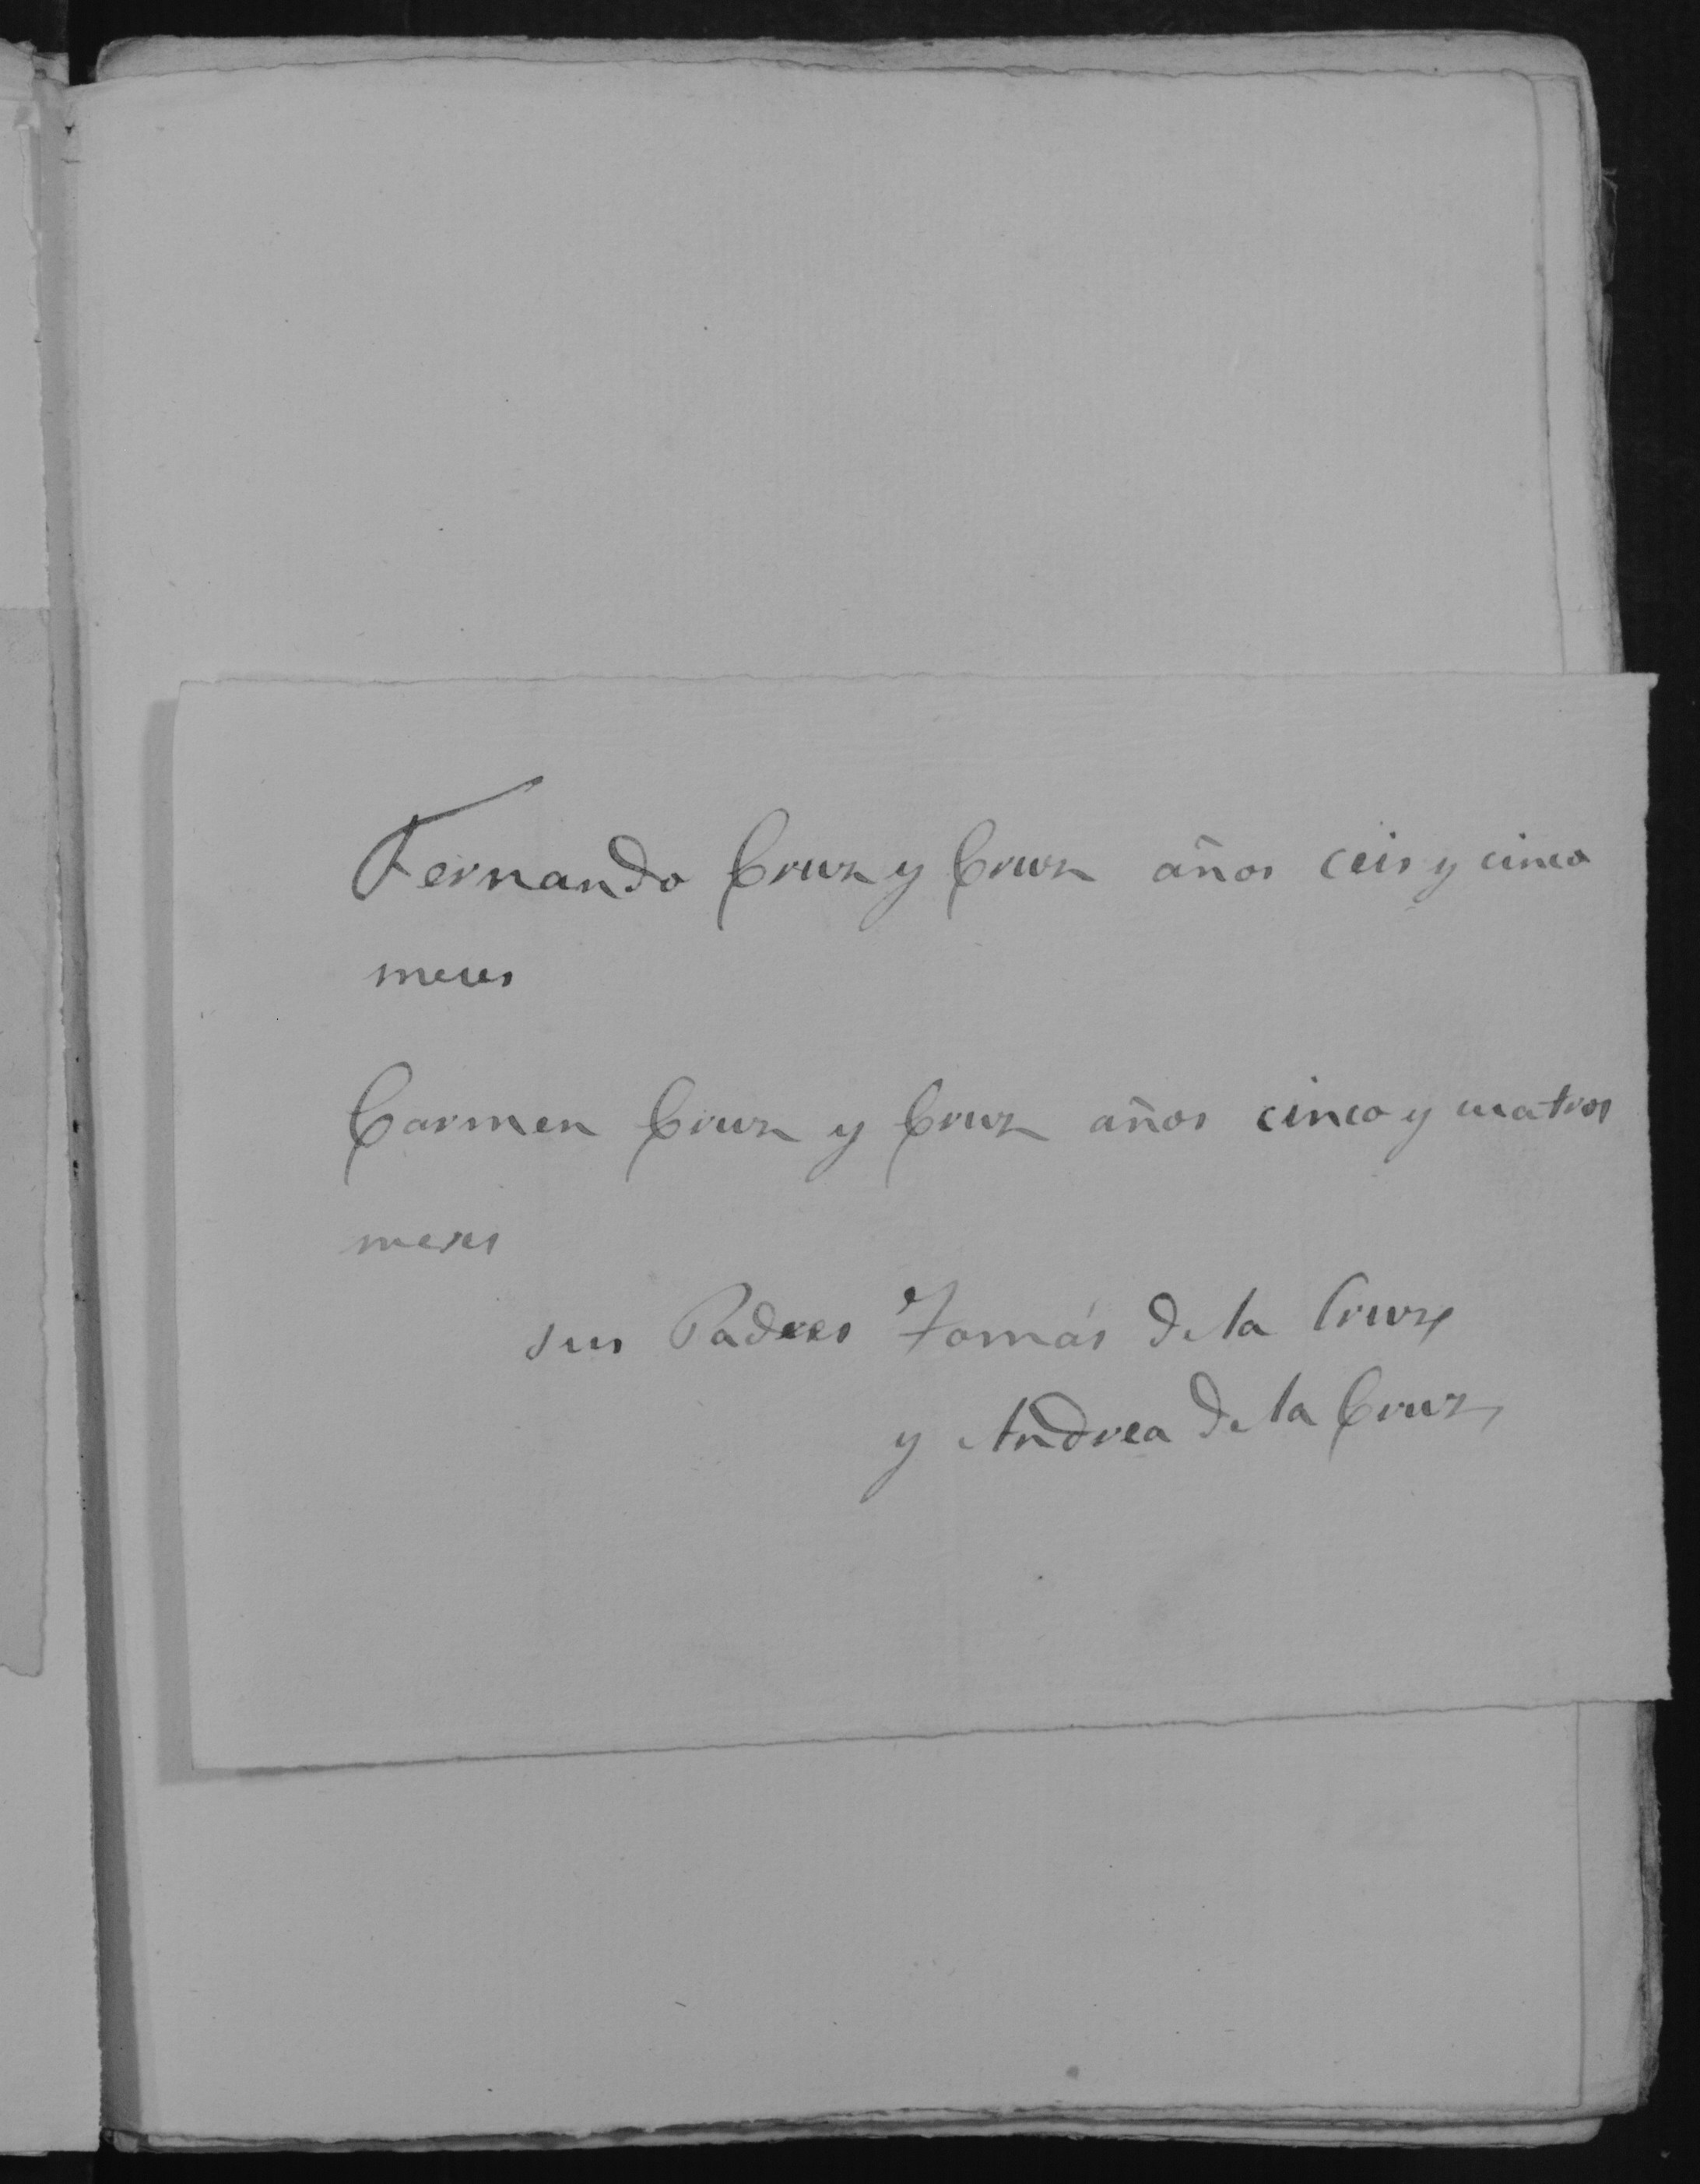 Fernando Cruz y Cruz años ceis y cinco
meces
Carmen Cruz y Cruz años cinco y cuatros
meses
sus Padres Tomás de la Cruz
y Andrea de la Cruz